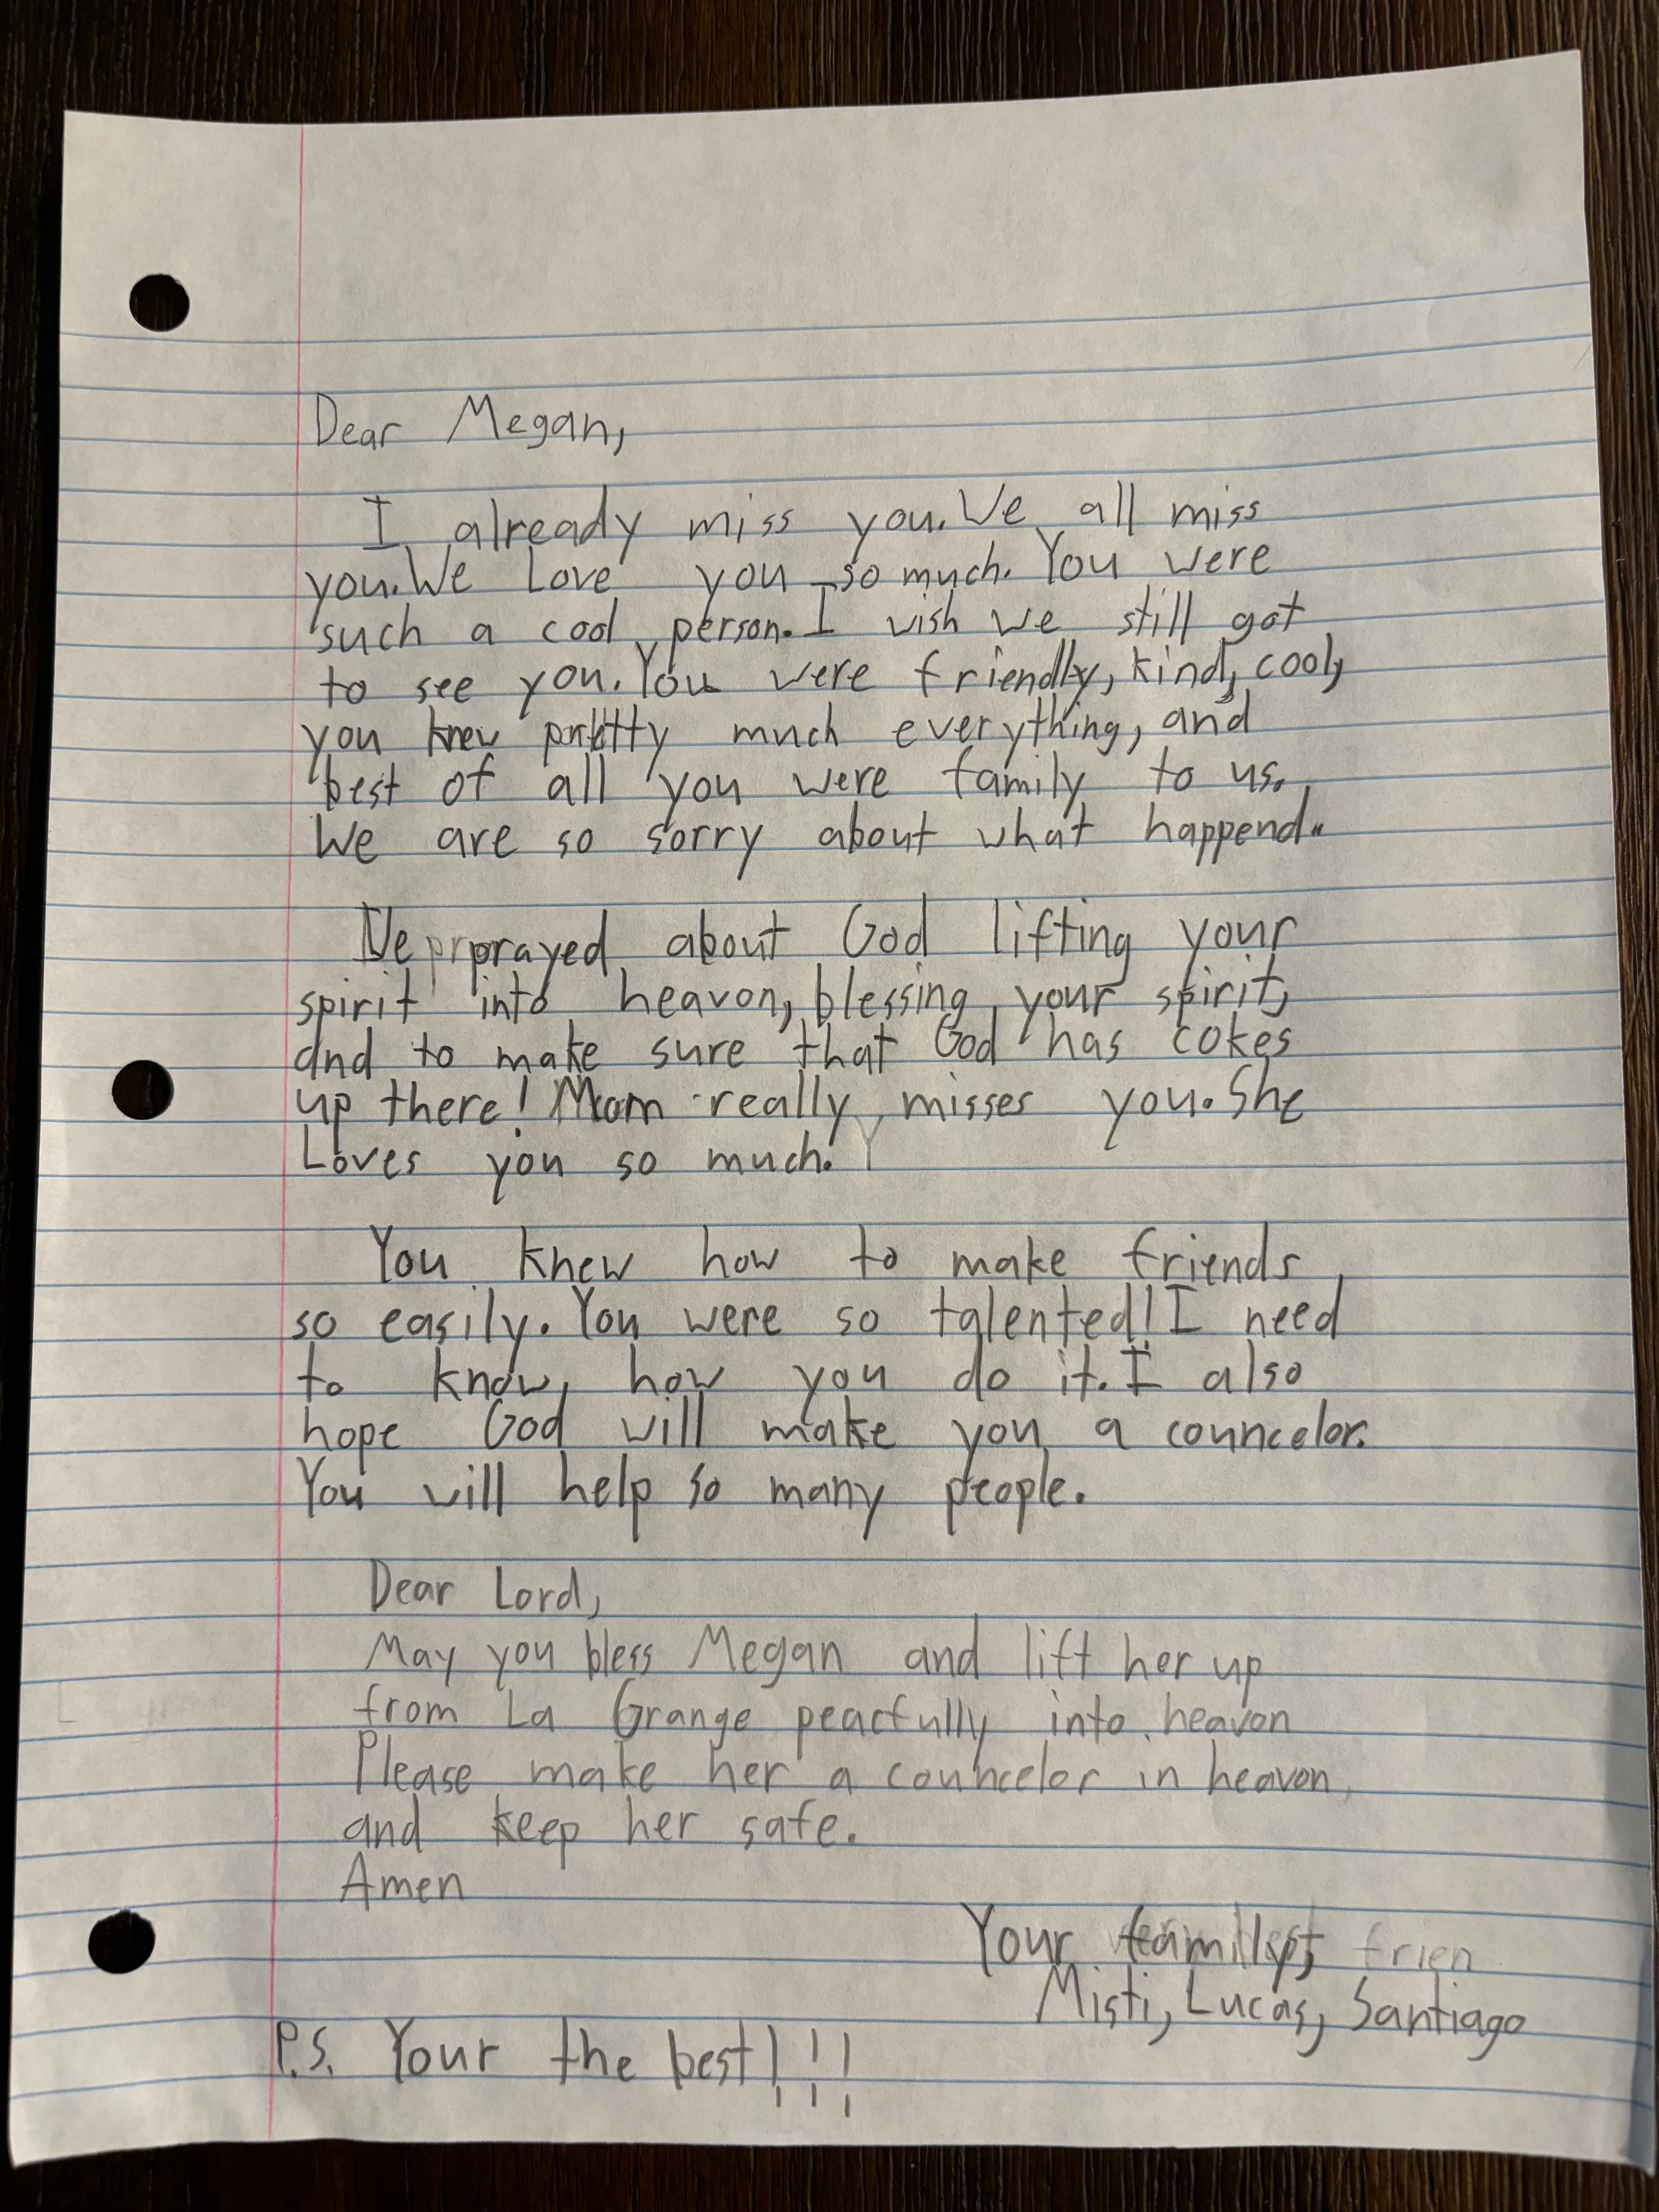 Dear Megan,
I already miss you. We all miss
you. We Love you so much. You were
such a cool person. I wish we still got
to see you. You were friendly, kind, cool,
you knew pretty much everything, and
best of all you were family to us.
We are so sorry about what happend.
We prayed about God lifting your
spirit into heavon, blessing your spirit,
and to make sure that God has cokes
up there! Mom really misses you. She
Loves you so much.
You knew how to make friends
so easily. You were so talented! I need
to know how you do it. I also
hope God will make you a councelor.
You will help so many people.
Dear Lord,
May you bless Megan and lift her up
from La Grange peacfully into heavon
Please make her a councelor in heavon
and keep her safe.
Amen
Your family, frien
Misti, Lucas, Santiago
P.S. Your the best!!!